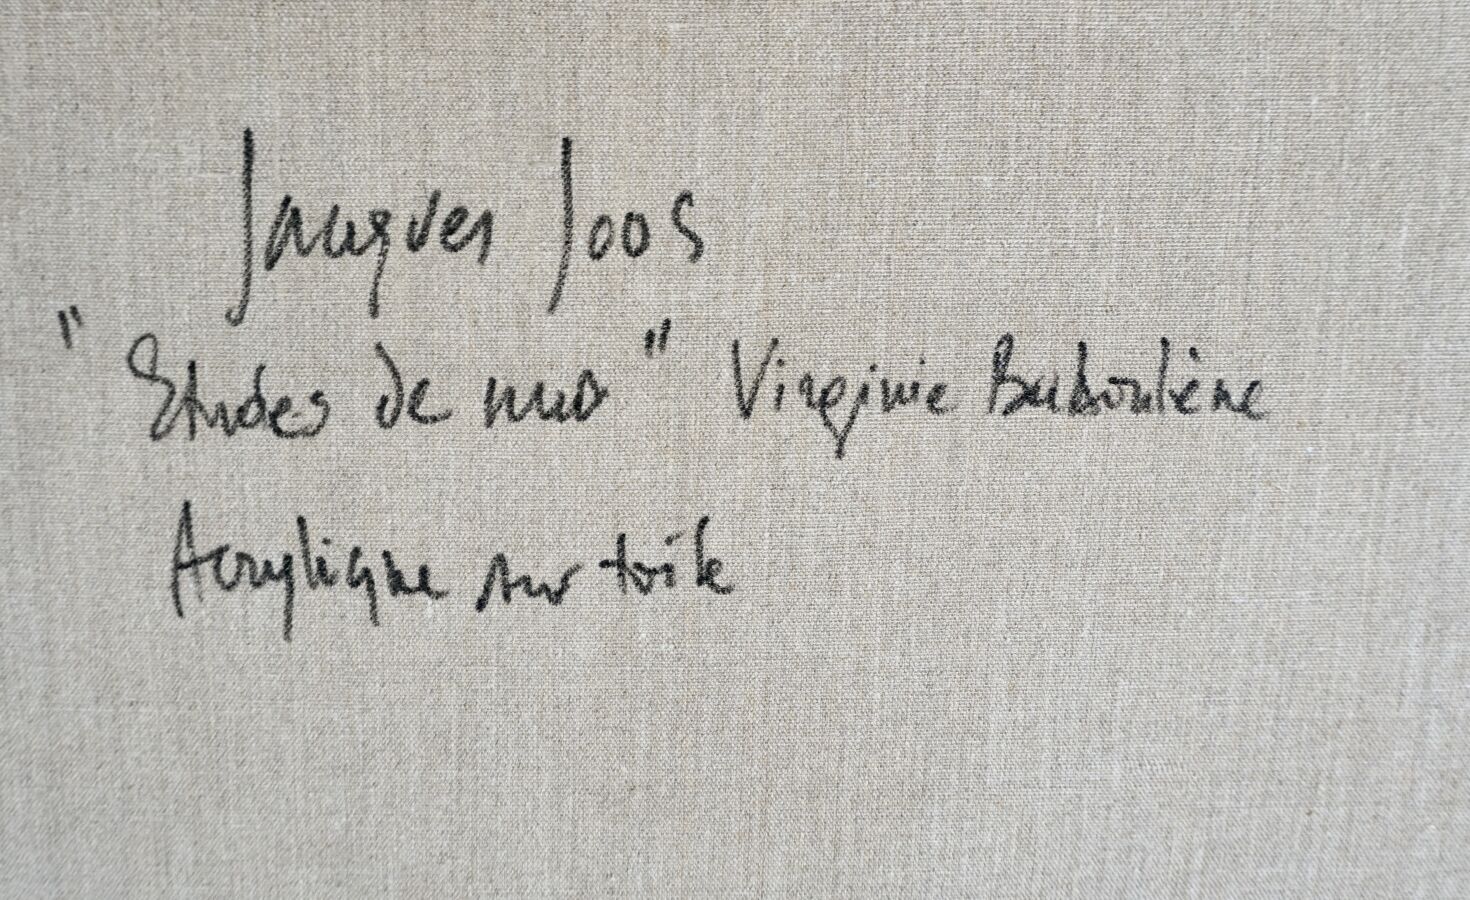 Jacques Joos
"Etudes de nus" Virginie
Acrylique sur toile